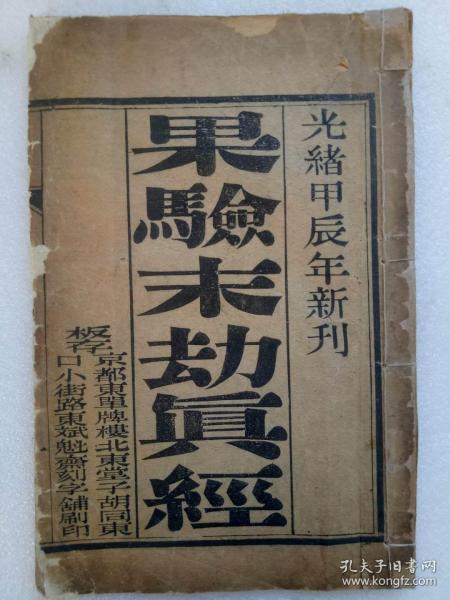 光緒甲辰年新刊
果驗末劫眞經
板存
京都東單牌樓北東堂子胡同東
口小街路東斌魁齋刻字舖刷印
孔夫子旧书网
www.kongfz.com